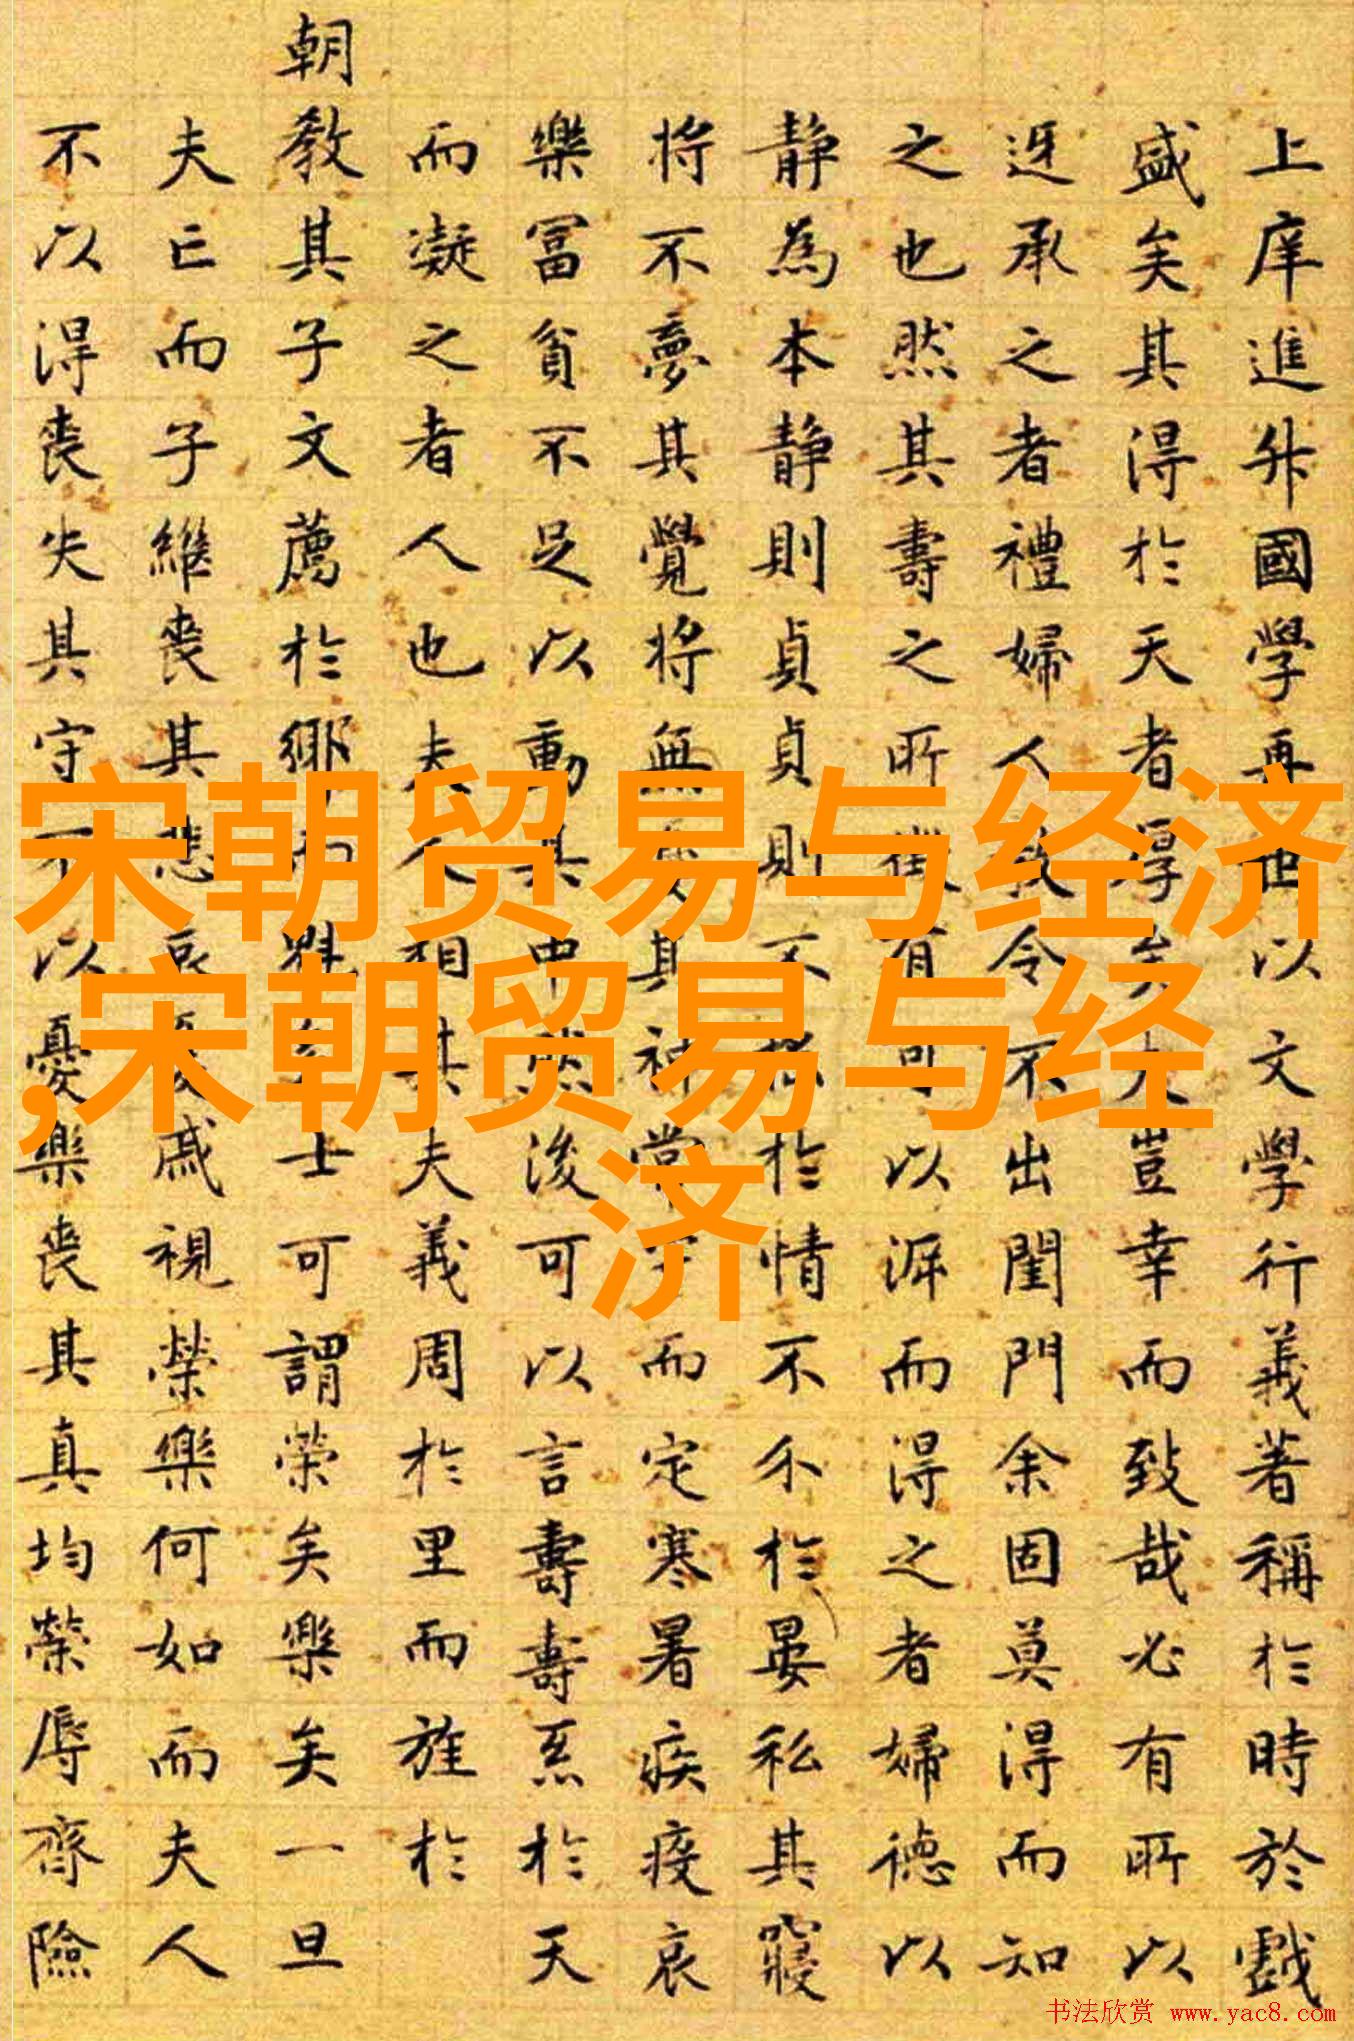 宋朝贸易与经济
,宋朝贸易与经
济
上庠進升國學再世以文學行義著稱於時於戲
盛矣其得於天者厚矣夫豈幸而致哉必有所以
迓承之者禮婦人教令不出閨門余固莫得而知
之也然其壽之所徵有可以涯而得之者婦德以
静為本静則貞貞則不私於情不於晏私其寢
將不夢其覺將無其神常而定寒暑疾疫哀
樂冨貧不足以動其中然後可以言壽壽系於天
而凝之者人也夫人相其夫義周於里而旌於
朝教其子文薦於鄉而魁士可謂荣矣樂矣一旦
夫亡而子繼喪其悲哀憂戚視榮樂何如而夫人
不以得喪失其守不以憂樂喪其真均榮辱齊險
书法欣赏 www.yac8.com